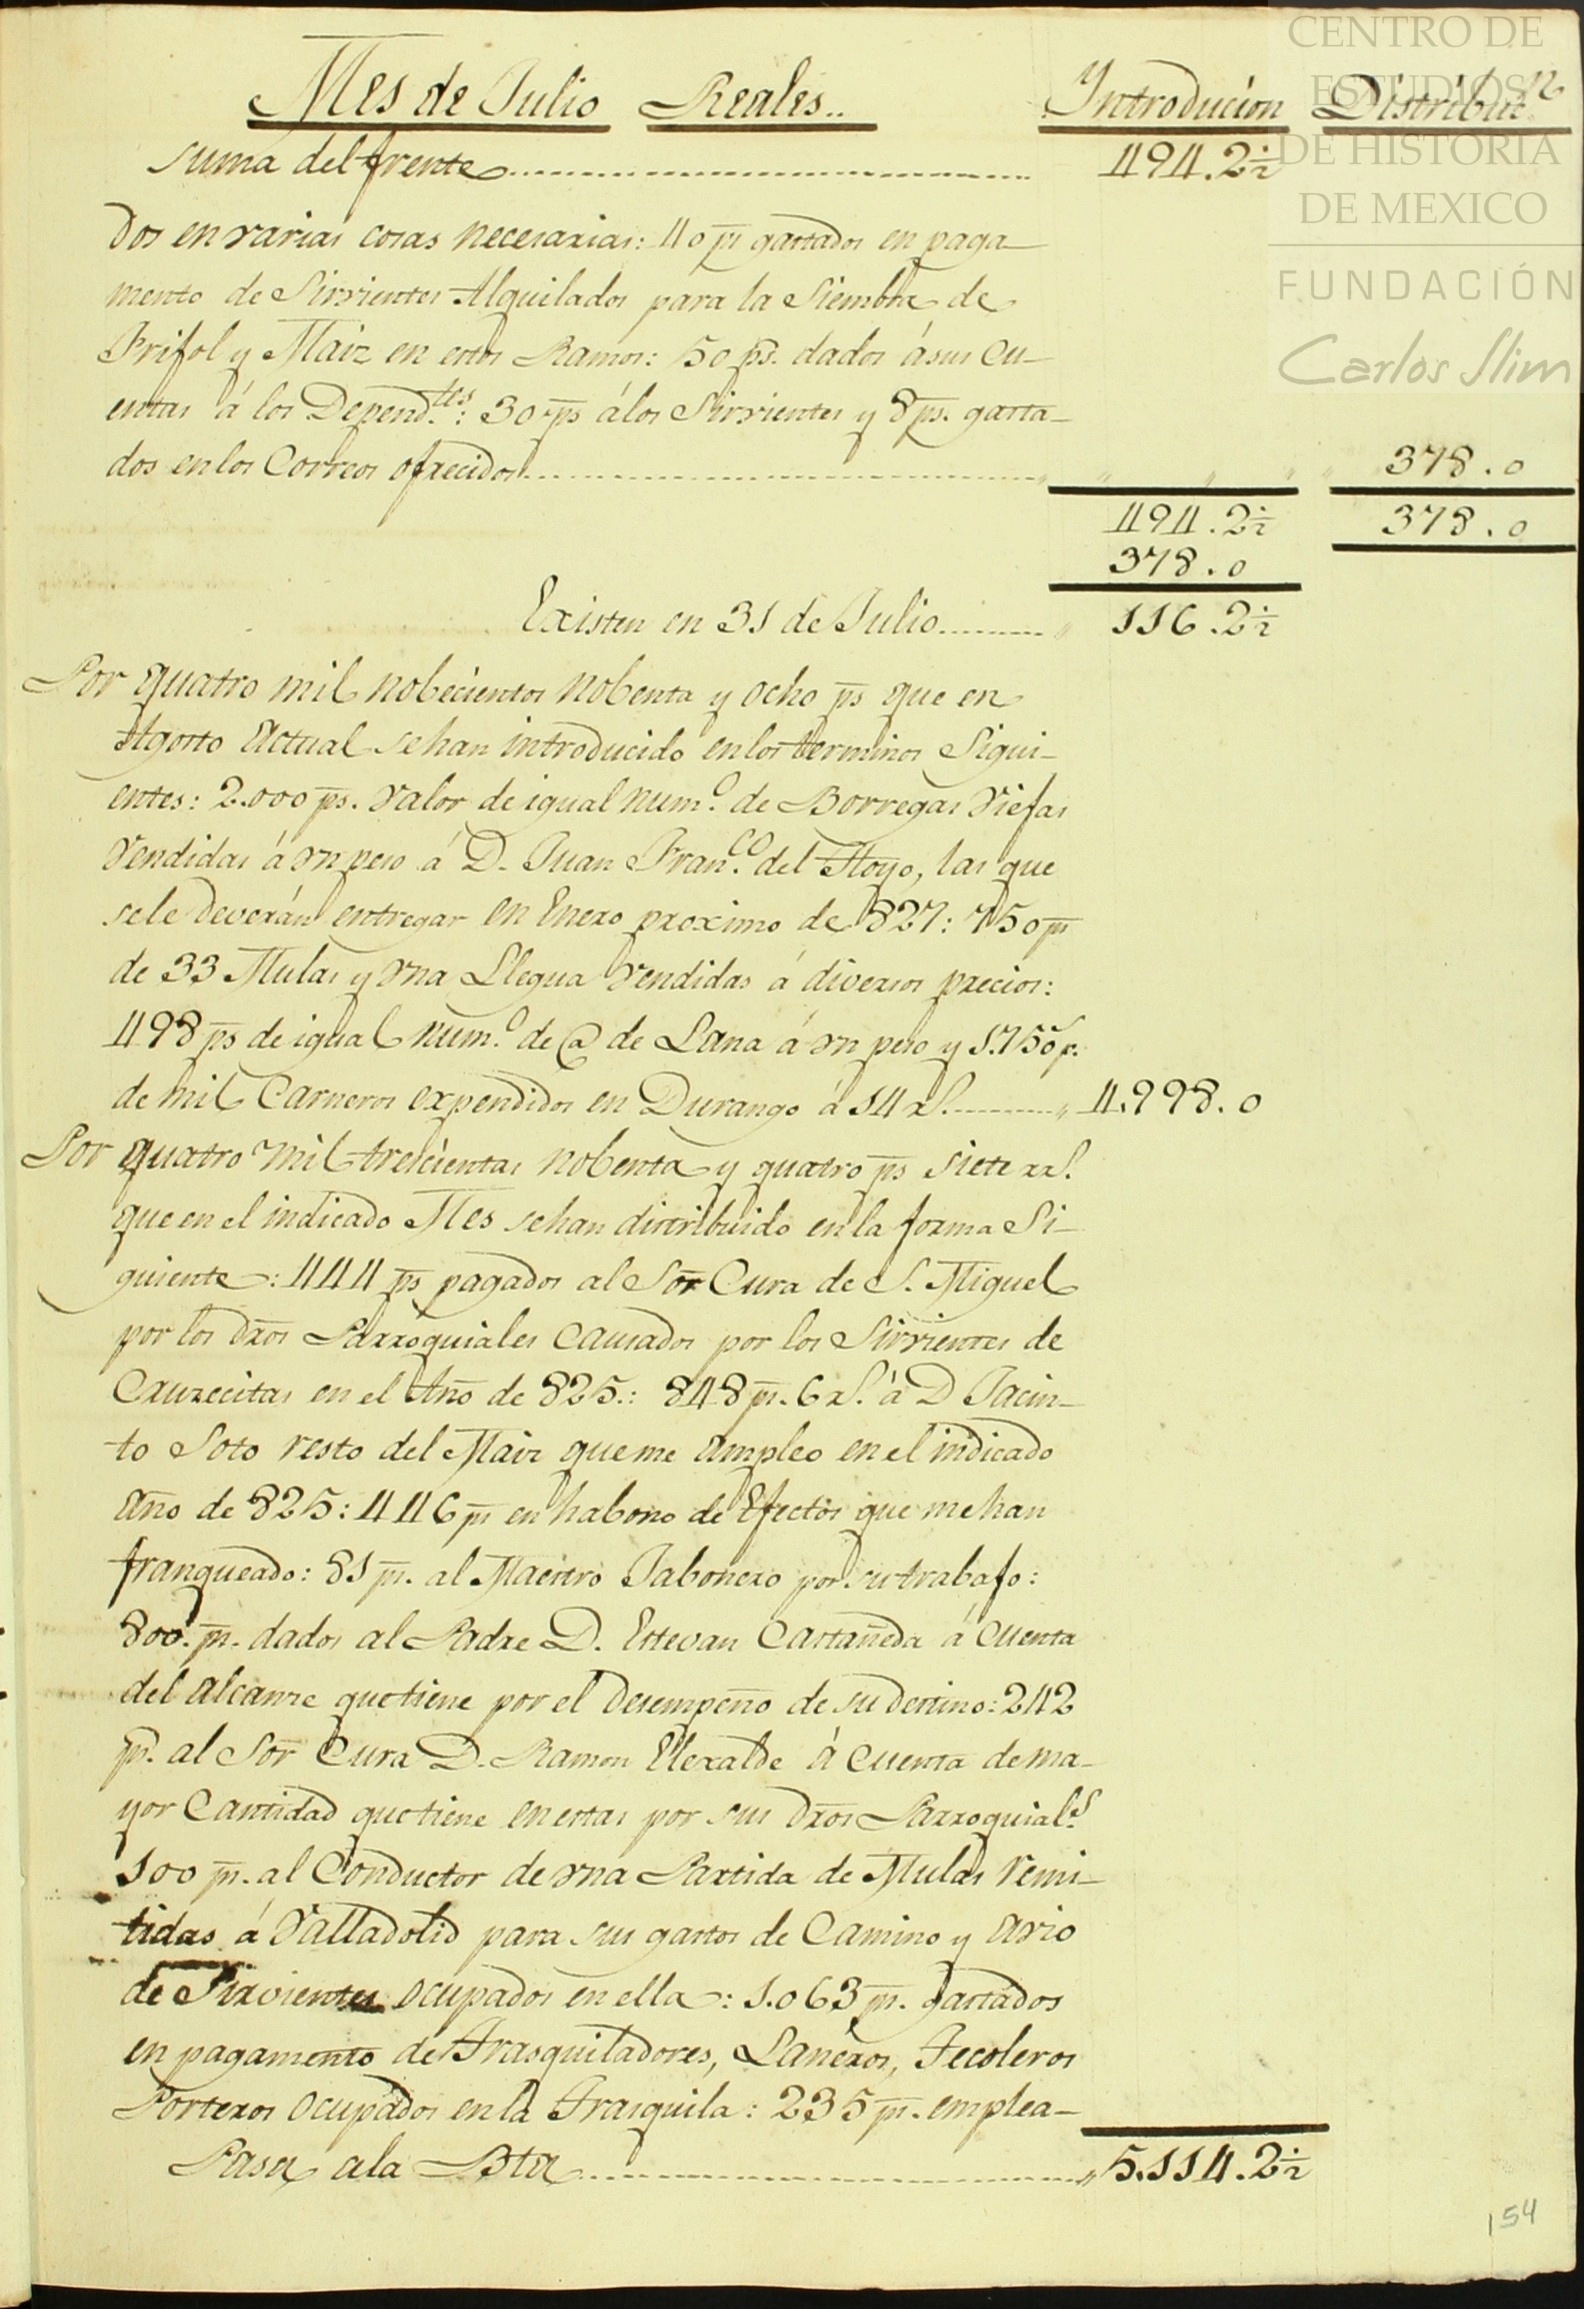 CENTRO DE
ESTUDIOS
DE HISTORIA
DE MEXICO
FUNDACIÓN
Carlos Slim
Mes de Julio Reales.. Introducion Distribuc.n
suma del frente 494.2½
dos en varias cosas necesarias: 40 ps gastados en paga-
mento de Sirvientes Alquilados para la Siembra de
Frijol y Maiz en estos Ramos: 50 ps. dados á sus Cu-
entas á los Depend.tes: 30 ps á los Sirvientes y 8 ps. gasta-
dos en los Correos ofrecidos 378.0
494.2½ 378.0
378.0
Existen en 31 de Julio 116.2½
Por quatro mil nobecientos nobenta y ocho ps que en
Agosto actual se han introducido en los terminos Sigui-
entes: 2.000 ps. valor de igual num.o de Borregas Viejas
vendidas á vn peso á D. Juan Fran.co del Hoyo, las que
se le deverán entregar en Enero proximo de 827: 750 ps
de 33 Mulas y vna Llegua vendidas á diversos precios:
498 ps de igual num.o de @ de Lana á vn peso y 1.750 p.
de mil Carneros expendidos en Durango á 14 rs. 4.998.0
Por quatro mil trescientas nobenta y quatro ps siete rrs.
que en el indicado Mes se han distribuido en la forma Si-
guiente: 444 ps pagados al Sor Cura de S. Miguel
por los dros Parroquiales Causados por los Sirvientes de
Cruzecitas en el Año de 825.: 848 ps. 6 rs. á D Jacin-
to Soto resto del Maiz que me ampleo en el indicado
año de 825: 446 ps en habono de Efectos que me han
franqueado: 81 ps. al Maestro Jabonero por su trabajo:
800. ps. dados al Padre D. Estevan Castañeda á Cuenta
del alcanze que tiene por el desempeño de su destino: 242
ps. al Sor Cura D. Ramon Elexalde á Cuenta de ma-
yor Cantidad que tiene en estas por sus dros Parroquial.s
100 ps. al Conductor de vna Partida de Mulas remi-
tidas á Valladolid para sus gastos de Camino y avio
de Sirvientes ocupados en ella: 1.063 ps. gastados
en pagamento de Trasquiladores, Laneros, Tecoleros
Porteros ocupados en la Trasquila: 235 ps. emplea-
Pasa a la Bta 5.114.2½
154